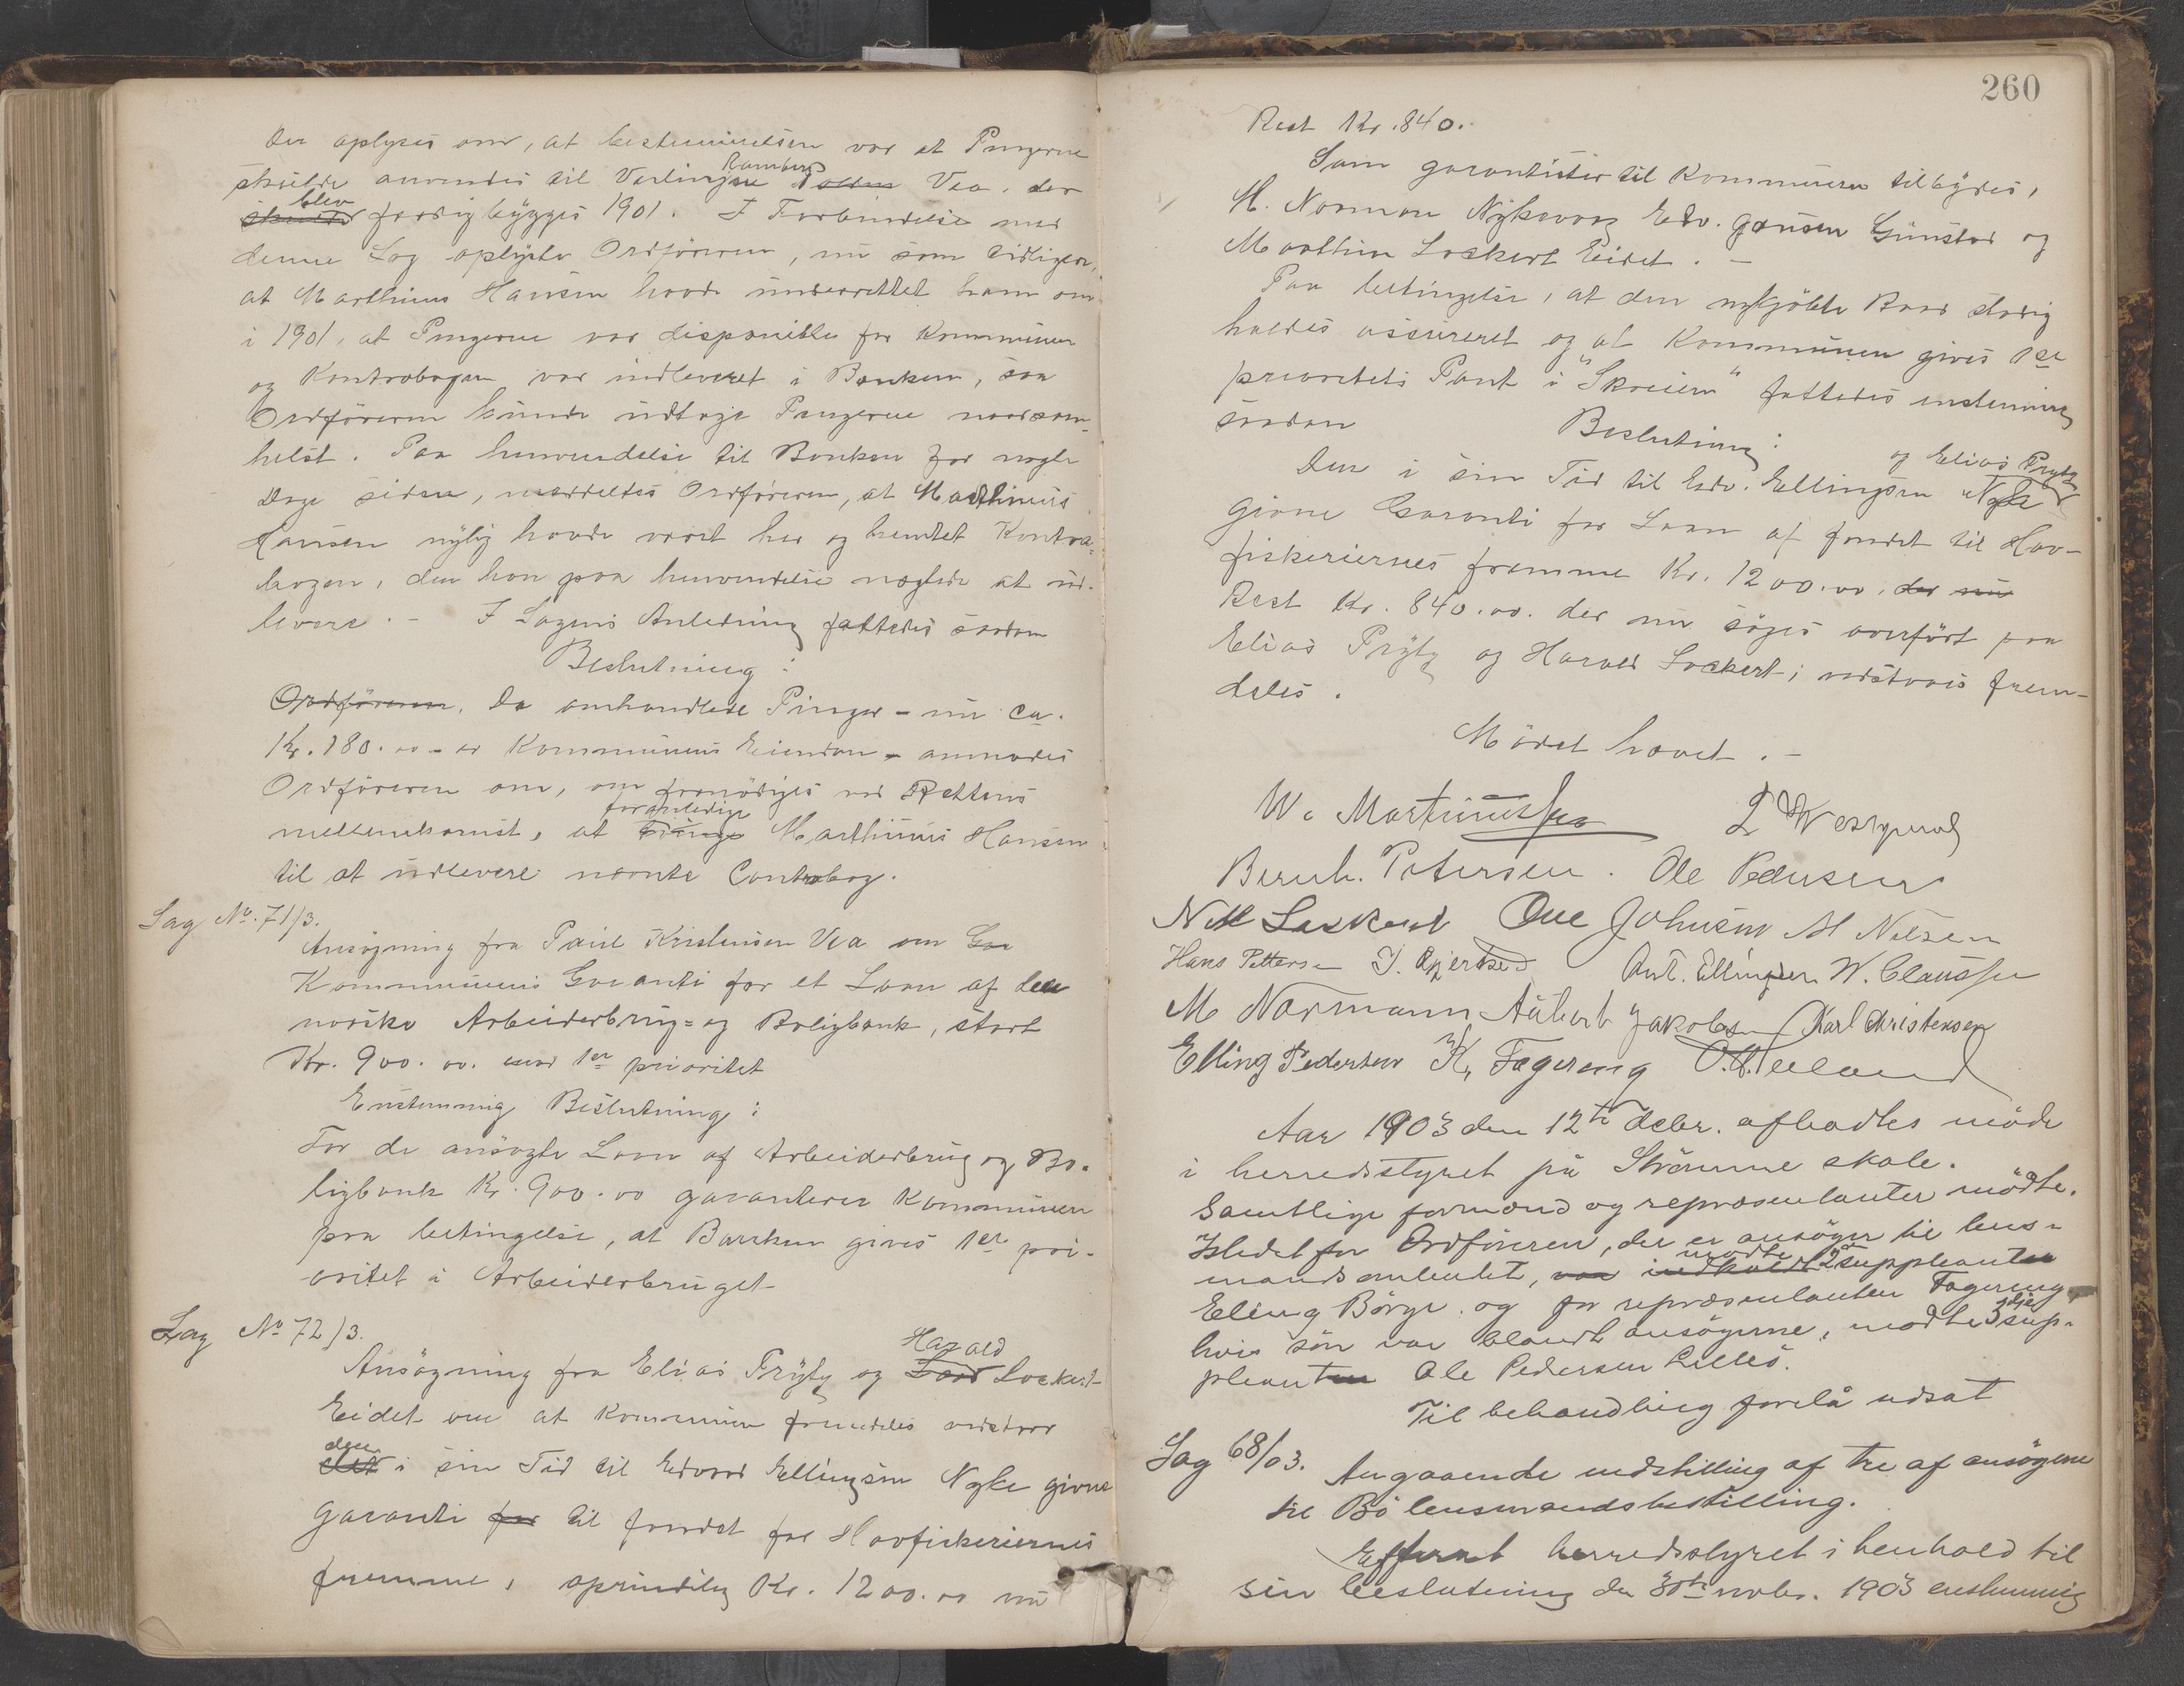 Der oplyses om, at bestemmelsen var at Pengerne
skulde anvendes til Veilinjen Ramberg Vea, der
blev færdigbygges 1901. I Forbindelse med
denne Sag oplyste Ordføreren, nu som tidligere,
at Marthinus Hansen havde underrettet ham om
i 1901, at Pengerne var disponible for Kommunen
og Kontrabogen var indleveret i Banken, saa
Ordføreren kunde udtage Pengerne naarsom-
helst. Paa henvendelse til Banken for nogle
Dage siden, meddeltes Ordføreren, at Marthinus
Hansen nylig havde været her og hentet Kontra-
bogen, den han paa henvendelse nægtede at ud-
levere. - I Sagens Anledning fattedes saadan
Beslutning:
Ordføreren. Da omhandlede Penger - nu ca.
Kr. 180.00 - er Kommunens Eiendom - anmodes
Ordføreren om, om fornødiges ved Rettens
mellemkomst, at foranledige tvinge Marthinus Hansen
til at udlevere nævnte Contrabog.
Sag No. 71/3.
Ansøgning fra Paul Kristensen Vea om
Kommunens Garanti for et Laan af den
norske Arbeiderbrug- og Boligbank, stort
Kr. 900.00. mod 1er prioritet
Enstemmig Beslutning:
For de ansøgte Laan af Arbeiderbrug og Bo-
ligbank Kr. 900.00 garanterer Kommunen
paa betingelse, at Banken gives 1er pri-
oritet i Arbeiderbruget
Sag No 72/3.
Ansøgning fra Elias Prytz og Harald Lockert
Eidet om at Kommunen fremdeles vedstaar
den det i sin Tid til Edvard Ellingsen Nyke givne
garanti for til fondet for Havfiskeriernes
fremme, oprindelig Kr. 1200.00 nu
260
Rest Kr. 840.
Som garantister til Kommunen tilbydes,
M. Norman Nykvaag Edv. Jansen Gunstad og
Marthin Lockert Eidet. -
Paa betingelse, at den nykjøbte Baad stadig
holdes assureret og at Kommunen gives 1ste
prioritets Pant i "Skreien" fattedes enstemmig
saadan Beslutning:
Den i sin Tid til Edv. Ellingsen Nyke og Elias Prytz
givne Garanti for Laan af fondet til Hav-
fiskeriernes fremme Kr. 1200.00. der nu
Rest Kr. 840.00. der nu søges overført paa
Elias Prytz og Harald Lockert, vedstaaes frem-
deles.
Mødet hævet. -
W. Martinussen
Bernh. Petersen. Ole Pedersen
Ove Johnsen M Nilsen
Hans Pettersen Ant. Ellingsen W. Claussen
M Normann Aubert Jakobsen Karl Christensen
Elling Pedersen K. Fagereng
Aar 1903 den 12te debr. afholdtes møde
i herredsstyret på Strømme skole.
Samtlige formænd og repræsentanter mødte.
Istedet for Ordføreren, der er ansøger til lens-
mandsembedet, var indkaldt mødte 2den suppleanten
Eling Børge. og for repræsentanten Fagereng,
hvis søn var blandt ansøgerne, mødte 3die sup-
pleanten Ole Pedersen Lilles.
Til behandling forelå udsat
Sag 68/03. Angaaende indstilling af tre af ansøgerne
til Bø lensmandsbestilling.
Efterat herredsstyret i henhold til
sin beslutning den 30te novbr. 1903 enstemmig